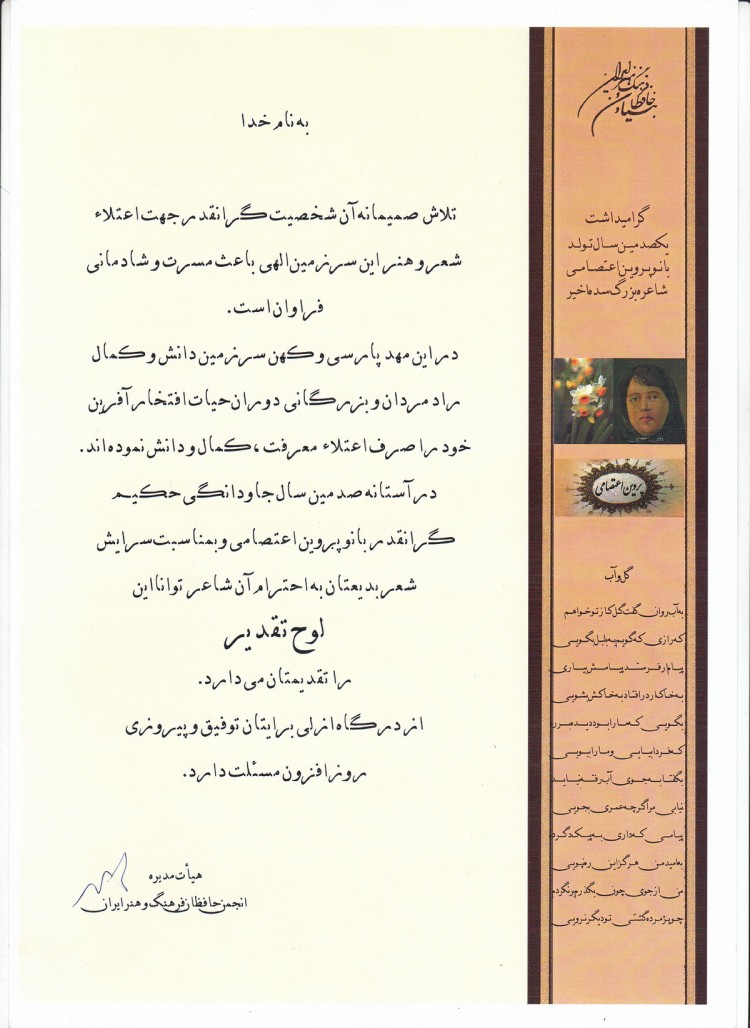 به نام خدا
تلاش صمیمانه آن شخصیت گرانقدر جهت اعتلاء
شعر و هنر این سرزمین الهی باعث مسرت و شادمانی
فراوان است.
در این مهد پارسی و کهن سرزمین دانش و کمال
راد مردان و بزرگانی دوران حیات افتخار آفرین
خود را صرف اعتلاء معرفت ، کمال و دانش نموده اند.
در آستانه صدمین سال جاودانگی حکیم
گرانقدر بانو پروین اعتصامی و بمناسبت سرایش
شعر بدیعتان به احترام آن شاعر توانا این
لوح تقدیر
را تقدیمتان می دارد.
از درگاه ازلی برایتان توفیق و پیروزی
روز افزون مسئلت دارد.
هیأت مدیره
انجمن حافظان فرهنگ و هنر ایران
گرامیداشت
یکصدمین سال تولد
بانو پروین اعتصامی
شاعره بزرگ سده اخیر
پروین اعتصامی
گل و آب
به آب روان گفت گل کاز تو خواهم
که رازی که گویم به بلبل بگویی
پیام ار فرستد پیامش بیاری
به خاک ار در افتد به خاکش بشویی
بگویی که ما را بود دیده بر ره
که فردا بیایی و ما را ببویی
بگفتا به جوی آب رفته نیاید
نیابی مرا گرچه عمری بجویی
پیامی که داری به پیک دگر ده
به امید من هرگز این ره نپویی
من از جوی چون بگذرم برنگردم
چو پژمرده گشتی تو دیگر نرویی